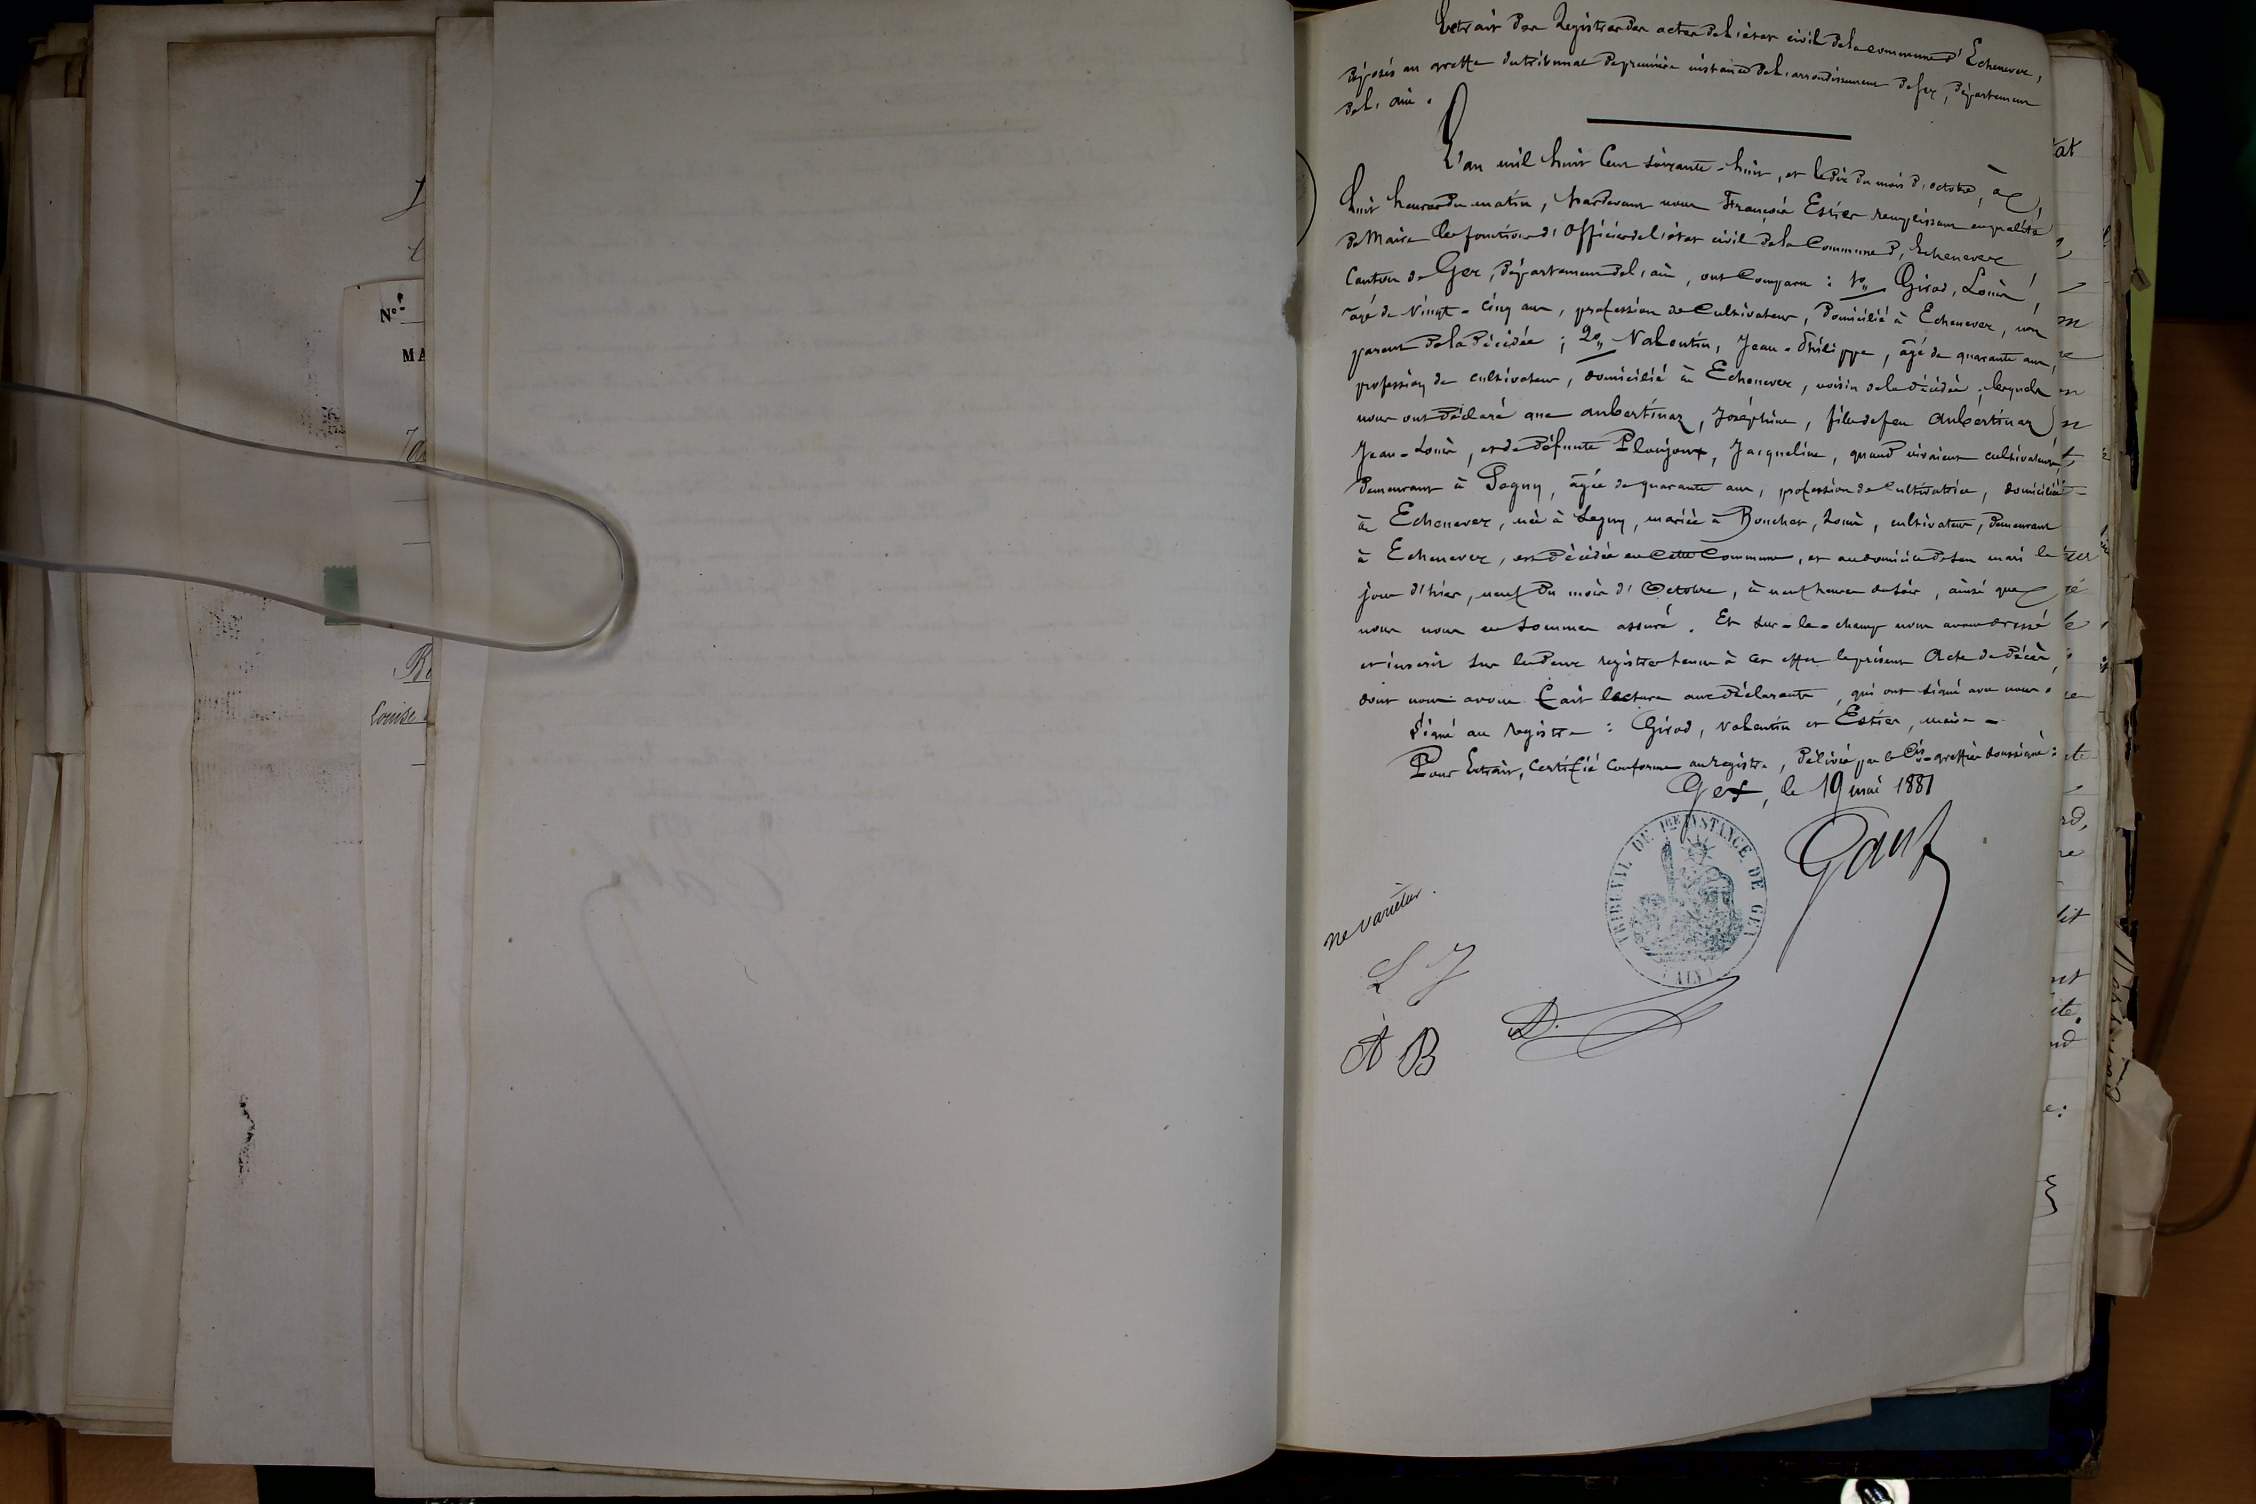 Extrait des Registres des actes de l'état civil de la commune d'Echenevex,
déposés au greffe du tribunal de première instance de l'arrondissement de Gex, département
de l'ain.
L'an mil huit Cent soixante-huit, et le dix du mois d'octobre, à
huit heures du matin, pardevant nous François Estier remplissant en qualité
de Maire les fonctions d'Officier de l'état civil de la Commune d'Echenevex
Canton de Gex, département de l'ain, ont Comparu : 1o,, Girod, Louis,
âgé de vingt-cinq ans, profession de Cultivateur, domicilié à Echenevex, non
parent de la décédée ; 2o,, Valentin, Jean-Philippe, âgé de quarante ans,
profession de cultivateur, domicilié à Echenevex, voisin de la décédée ; lesquels
nous ont déclaré que aubertinaz, Joséphine, fille de feu Aubertinaz
Jean-Louis, et de défunte Planjoux, Jacqueline, quand vivaient cultivateurs,
demeurant à Segny, âgée de quarante ans, profession de Cultivatrice, domiciliée
à Echenevex, née à Segny, mariée à Boucher, Louis, cultivateur, demeurant
à Echenevex, est décédée en cette Commune, et au domicile de son mari le
jour d'hier, neuf du mois d'Octobre, à neuf heures du soir, ainsi que
nous nous en sommes assuré. Et sur-le-champ nous avons dressé
et inscrit sur les deux registres tenus à cet effet le présent Acte de décès,
dont nous avons fait lecture aux déclarants, qui ont signé avec nous.
Signé au registre : Girod, Valentin et Estier, maire -
Pour Extrait, Certifié Conforme au registre, délivré par le Cis-greffier soussigné :
Gex, le 19 mai 1881
TRIBUNAL DE 1RE INSTANCE DE GEX
(AIN)
ne varietur.
L J
A B
D.
No
MA
Louise